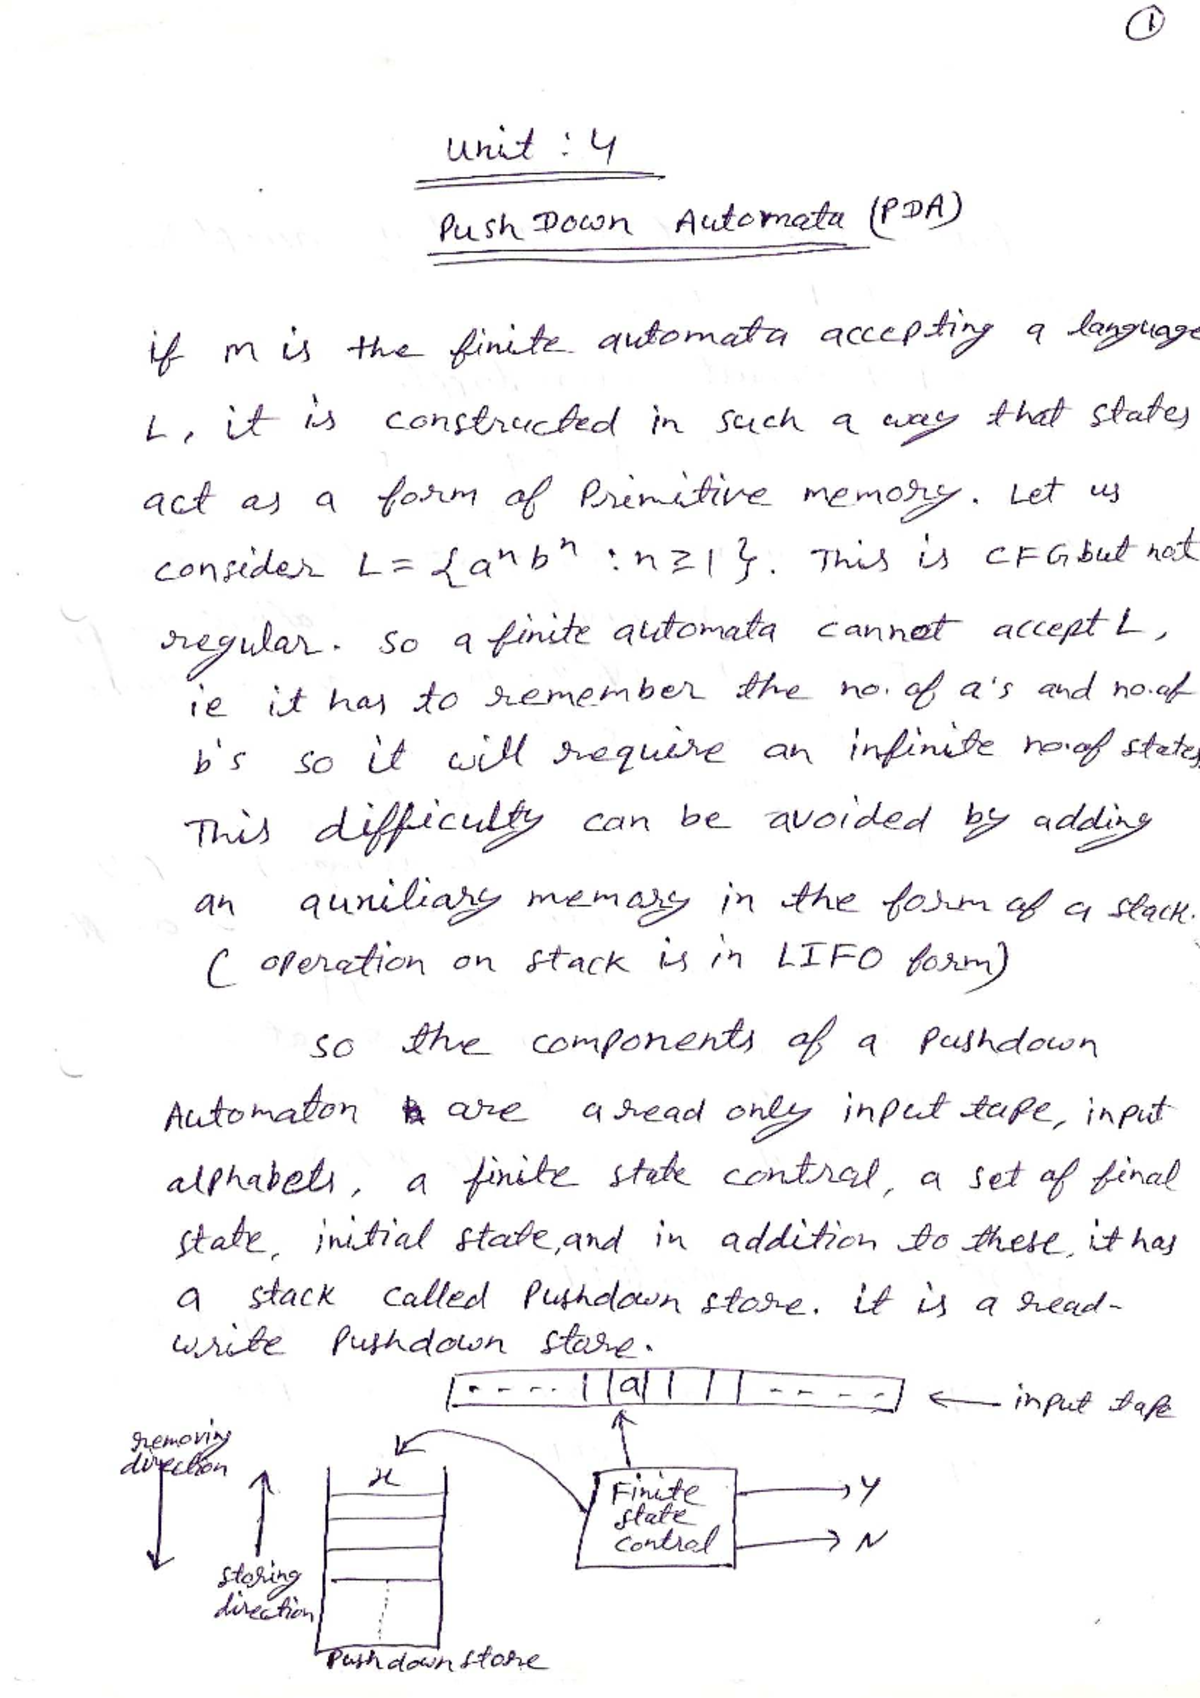 1
Unit : 4
Push Down Automata (PDA)
if m is the finite automata accepting a language
L, it is constructed in such a way that states
act as a form of Primitive memory. Let us
consider L = {aⁿbⁿ : n ≥ 1}. This is CFG but not
regular. So a finite automata cannot accept L,
ie it has to remember the no. of a's and no. of
b's so it will require an infinite no. of states
This difficulty can be avoided by adding
an auxiliary memory in the form of a stack.
( operation on stack is in LIFO form)
so the components of a pushdown
Automaton are a read only input tape, input
alphabets, a finite state control, a set of final
state, initial state, and in addition to these, it has
a stack called Pushdown store. it is a read-
write Pushdown store.
. - - - . a - - - - -
← input tape
removing
direction
x
Finite
state
control
Y
N
storing
direction
Pushdown store